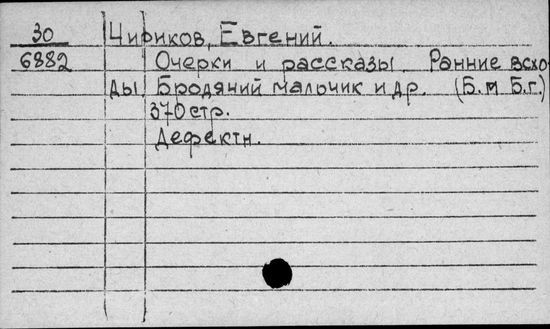 30 Чириков, Евгений.
6882 Очерки и рассказы Ранние всхо-
ды. Бродячий мальчик и др. (Б.м Б.г.)
370 стр.
Дефектн.